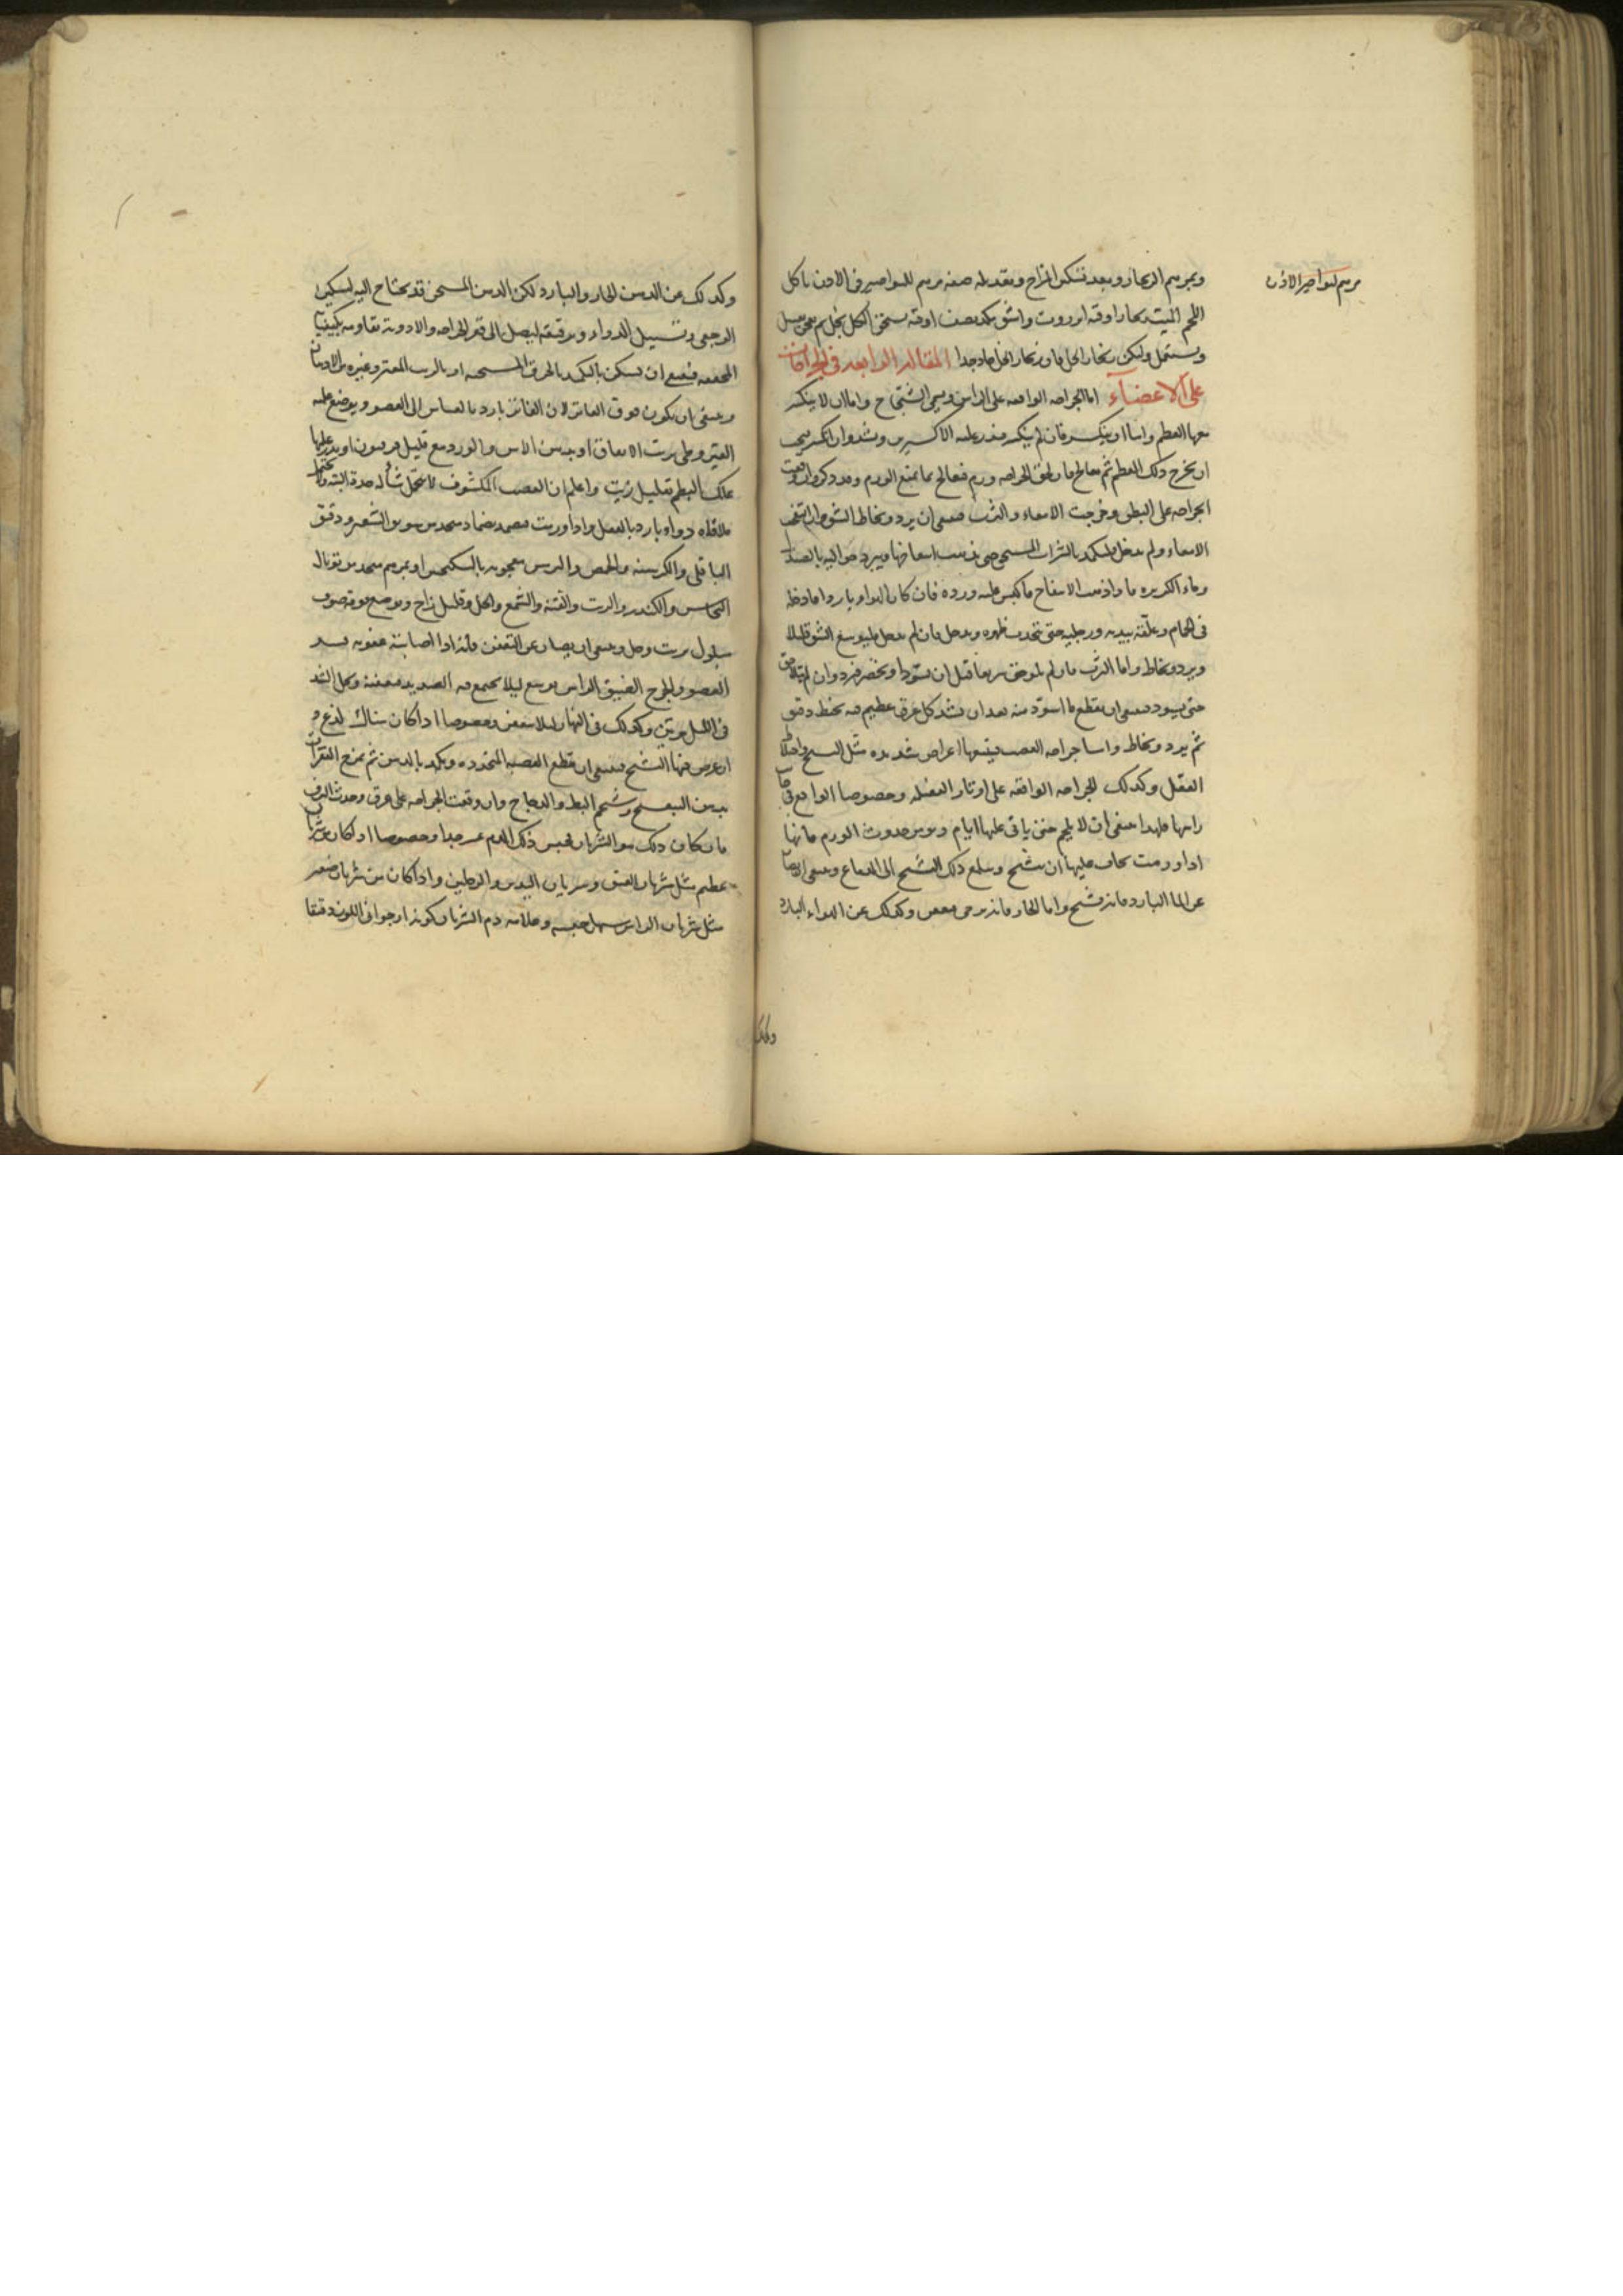 مرهم لنواصير الاذن
وبمرهم الزنجار وبعد تسكين المزاج وتعديله صفة مرهم للنواصير في الاذن ياكل
اللحم الميت زنجار اوقية انزروت واشق كل نصف اوقية يسحق الكل بخل ثم يعجن بعسل
ويستعمل ولكن زنجار الخل فان زنجار الخل حاد جدا المقالة الرابعة في الجراحات
على الاعضاء اما الجراحة الواقعة على الراس ويسمى الشجاج واما ان لا ينكسر
معها العظم واما ان ينكسر فان لم ينكسر فيذر عليه الاكسيرين ويشد وان انكسر فيجب
ان يخرج ذلك العظم ثم يعالج فان لحق الجراحة ورم فيعالج بما يمنع الورم وقد ذكر وان وقعت
الجراحة على البطن وخرجت الامعاء والثرب فينبغي ان يرد ويخاط الشق وان انتفخ
الامعاء ولم يدخل فليكمد بالشراب المسخن حتى يذهب انتفاخها ويبرد حواليه بالصندل
وماء الكزبره فاذا ذهب الانتفاخ فاكبس عليه ورده فان كان الهواء باردا فادخله
في الحمام وعلقه بيديه ورجليه حتى يتحدب ظهره ويدخل فان لم يدخل فليوسع الشق قليلا
ويرد ويخاط واما الثرب فان لم يلحق سريعا قبل ان يسود او يخضر فيرد وان لم يتلاحق
حتى يسود فينبغي ان يقطع ما اسود منه بعد ان يشد كل عرق عظيم فيه بخيط دقيق
ثم يرد ويخاط واما جراحة العصب فيتبعها اعراض شديدة مثل التشنج واختلاط
العقل وكذلك الجراحة الواقعة على اوتار العضلة وخصوصا الواقع في
راسها فلهذا ينبغي ان لا يلحم حتى ياتي عليها ايام ويؤمن حدوث الورم فانها
اذا ورمت يخاف عليها ان يتشنج ويبلغ ذلك التشنج الى الدماغ وينبغي ايضا
عن الماء البارد فانه يشنج واما الحار فانه يرخي ويعفن وكذلك عن الهواء البارد
وكذلك
وكذلك عن الدهن الحار والبارد لكن الدهن المسخن قد يحتاج اليه لتسكين
الوجع وتسييل الدواء وترقيقه ليصل الى قعر الجراحة والادوية تقاومه بكيفيتها
المجففة فينبغي ان يسكن بالتكميد بالخرق المسخنة او بالزيت المفتر وغيره من الادهان
وينبغي ان يكون فوق الفاتر لان الفاتر بارد بالقياس الى العضو ويوضع عليه
القيروطي بزيت الانفاق او بدهن الاس والورد مع قليل فربيون او يذر عليها
علك البطم بقليل زيت واعلم ان العصب المكشوف لا يحتمل
ملاقاة دواء بارد بالفعل واذا ورمت فيضمد بضماد متخذ من سويق الشعير ودقيق
الباقلى والكرسنه والحمص والترمس معجونة بالسكنجبين او بمرهم متخذ من توبال
النحاس والكندر والزيت والقنة والشمع والخل وقليل زاج ويوضع فوقه صوف
مبلول بزيت وخل وينبغي ان يصان عن التعفن فانه اذا اصابته عفونة فسد
العضو والجرح الضيق الراس يوسع ليلا يجتمع فيه الصديد فيعفنه ويحل الشد
في الليل مرتين وكذلك في النهار ليلا يتعفن وخصوصا اذا كان هناك لذع و
ان عرض منها التشنج فينبغي ان يقطع العصبة المتمددة ويكمد بالدهن ثم يمرخ الفقرات
بدهن البنفسج وشحم البط والدجاج وان وقعت الجراحة على عرق وحدث النزف
فان كان ذلك هو الشريان فحبس ذلك الدم عسر جدا وخصوصا اذا كان من شريان
عظيم مثل شريان العنق وشريان اليدين والرجلين واذا كان من شريان صغير
مثل شريان الراس يسهل حبسه وعلامة دم الشريان كونه ارجواني اللون دقيقا